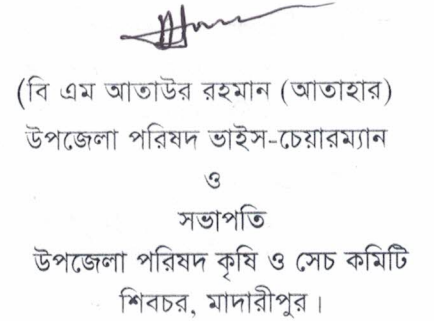 (বি এম আতাউর রহমান (আতাহার)
উপজেলা পরিষদ ভাইস-চেয়ারম্যান
ও
সভাপতি
উপজেলা পরিষদ কৃষি ও সেচ কমিটি
শিবচর, মাদারীপুর।